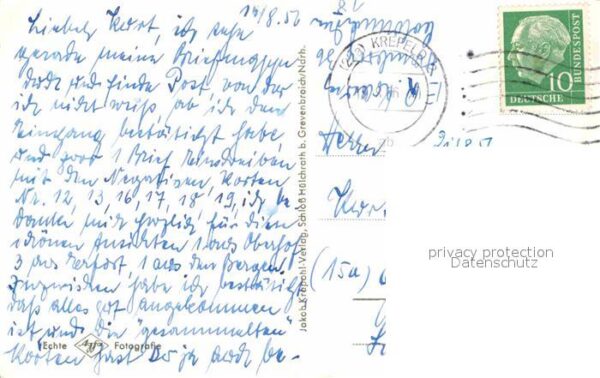 14/8.56
Lieber Kurt, ich sehe
gerade meine Briefmappe
durch und finde Post von der
ich nicht weiß ob ich den
Eingang bestätigt habe
und zwar 1 Brief Einschreiben
mit den Negativen, Karten
Nr. 12, 13, 16, 17, 18, 19, ich be
danke mich herzlich für die
schönen Ansichten 1 aus Oberhof
3 aus Erfurt, 1 aus den Bergen.
Inzwischen habe ich bestätigt
daß alles gut angekommen
ist und die "gesammelten"
Karten hast Du ja auch be-
Echte Agfa Fotografie
Jakob Krapohl-Verlag, Schloß Hülchrath b. Grevenbroich/Ndrh.
KREFELD
10
DEUTSCHE
BUNDESPOST
Herrn
Kurt
(15a)
privacy protection
Datenschutz